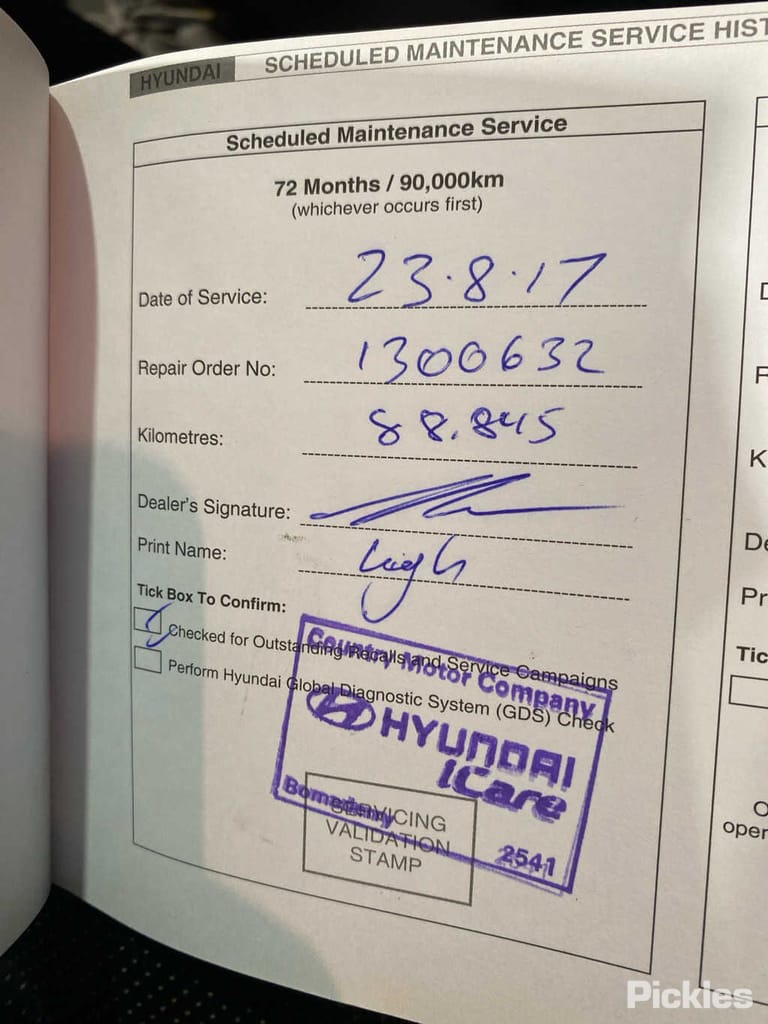 HYUNDAI SCHEDULED MAINTENANCE SERVICE HIST
Scheduled Maintenance Service
72 Months / 90,000km
(whichever occurs first)
Date of Service: 23.8.17
Repair Order No: 1300632
Kilometres: 88.845
Dealer's Signature:
Print Name:
Tick Box To Confirm:
Checked for Outstanding Recalls and Service Campaigns
Perform Hyundai Global Diagnostic System (GDS) Check
Country Motor Company
HYUNDAI
iCare
Bomaderry
2541
SERVICING
VALIDATION
STAMP
D
R
K
De
Pr
Tic
O
oper
Pickles